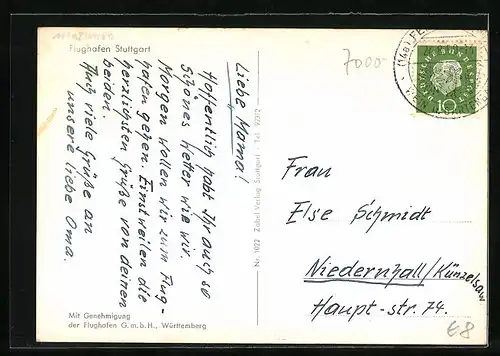 Flughafen Stuttgart
7000
Liebe Mama!
Hoffentlich habt Ihr auch so
schönes Wetter wie wir.
Morgen wollen wir zum Flug-
hafen gehen. Einstweilen die
herzlichsten Grüße von deinen
beiden.
Auch viele Grüße an
unsere liebe Oma.
Nr. 1022 Zobel Verlag Stuttgart · Tel.
10
Frau
Else Schmidt
Niedernhall/Künzelsau
Haupt-str. 74.
Mit Genehmigung
der Flughafen G.m.b.H., Württemberg
€8